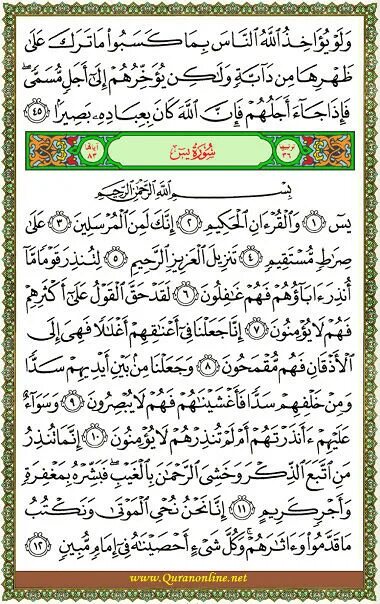 وَلَوْ يُؤَاخِذُ اللَّهُ النَّاسَ بِمَا كَسَبُوا مَا تَرَكَ عَلَىٰ
ظَهْرِهَا مِن دَابَّةٍ وَلَٰكِن يُؤَخِّرُهُمْ إِلَىٰ أَجَلٍ مُّسَمًّى ۖ
فَإِذَا جَاءَ أَجَلُهُمْ فَإِنَّ اللَّهَ كَانَ بِعِبَادِهِ بَصِيرًا ﴿٤٥﴾
ترتيبها ٣٦ سُورَةُ يسٓ آياتها ٨٣
بِسْمِ اللَّهِ الرَّحْمَٰنِ الرَّحِيمِ
يسٓ ﴿١﴾ وَالْقُرْءَانِ الْحَكِيمِ ﴿٢﴾ إِنَّكَ لَمِنَ الْمُرْسَلِينَ ﴿٣﴾ عَلَىٰ
صِرَٰطٍ مُّسْتَقِيمٍ ﴿٤﴾ تَنزِيلَ الْعَزِيزِ الرَّحِيمِ ﴿٥﴾ لِتُنذِرَ قَوْمًا مَّا
أُنذِرَ ءَابَاؤُهُمْ فَهُمْ غَٰفِلُونَ ﴿٦﴾ لَقَدْ حَقَّ الْقَوْلُ عَلَىٰ أَكْثَرِهِمْ
فَهُمْ لَا يُؤْمِنُونَ ﴿٧﴾ إِنَّا جَعَلْنَا فِي أَعْنَٰقِهِمْ أَغْلَٰلًا فَهِيَ إِلَى
الْأَذْقَانِ فَهُم مُّقْمَحُونَ ﴿٨﴾ وَجَعَلْنَا مِن بَيْنِ أَيْدِيهِمْ سَدًّا
وَمِنْ خَلْفِهِمْ سَدًّا فَأَغْشَيْنَٰهُمْ فَهُمْ لَا يُبْصِرُونَ ﴿٩﴾ وَسَوَاءٌ
عَلَيْهِمْ ءَأَنذَرْتَهُمْ أَمْ لَمْ تُنذِرْهُمْ لَا يُؤْمِنُونَ ﴿١٠﴾ إِنَّمَا تُنذِرُ
مَنِ اتَّبَعَ الذِّكْرَ وَخَشِيَ الرَّحْمَٰنَ بِالْغَيْبِ ۖ فَبَشِّرْهُ بِمَغْفِرَةٍ
وَأَجْرٍ كَرِيمٍ ﴿١١﴾ إِنَّا نَحْنُ نُحْيِ الْمَوْتَىٰ وَنَكْتُبُ
مَا قَدَّمُوا وَءَاثَٰرَهُمْ ۚ وَكُلَّ شَيْءٍ أَحْصَيْنَٰهُ فِي إِمَامٍ مُّبِينٍ ﴿١٢﴾
www.Quranonline.net